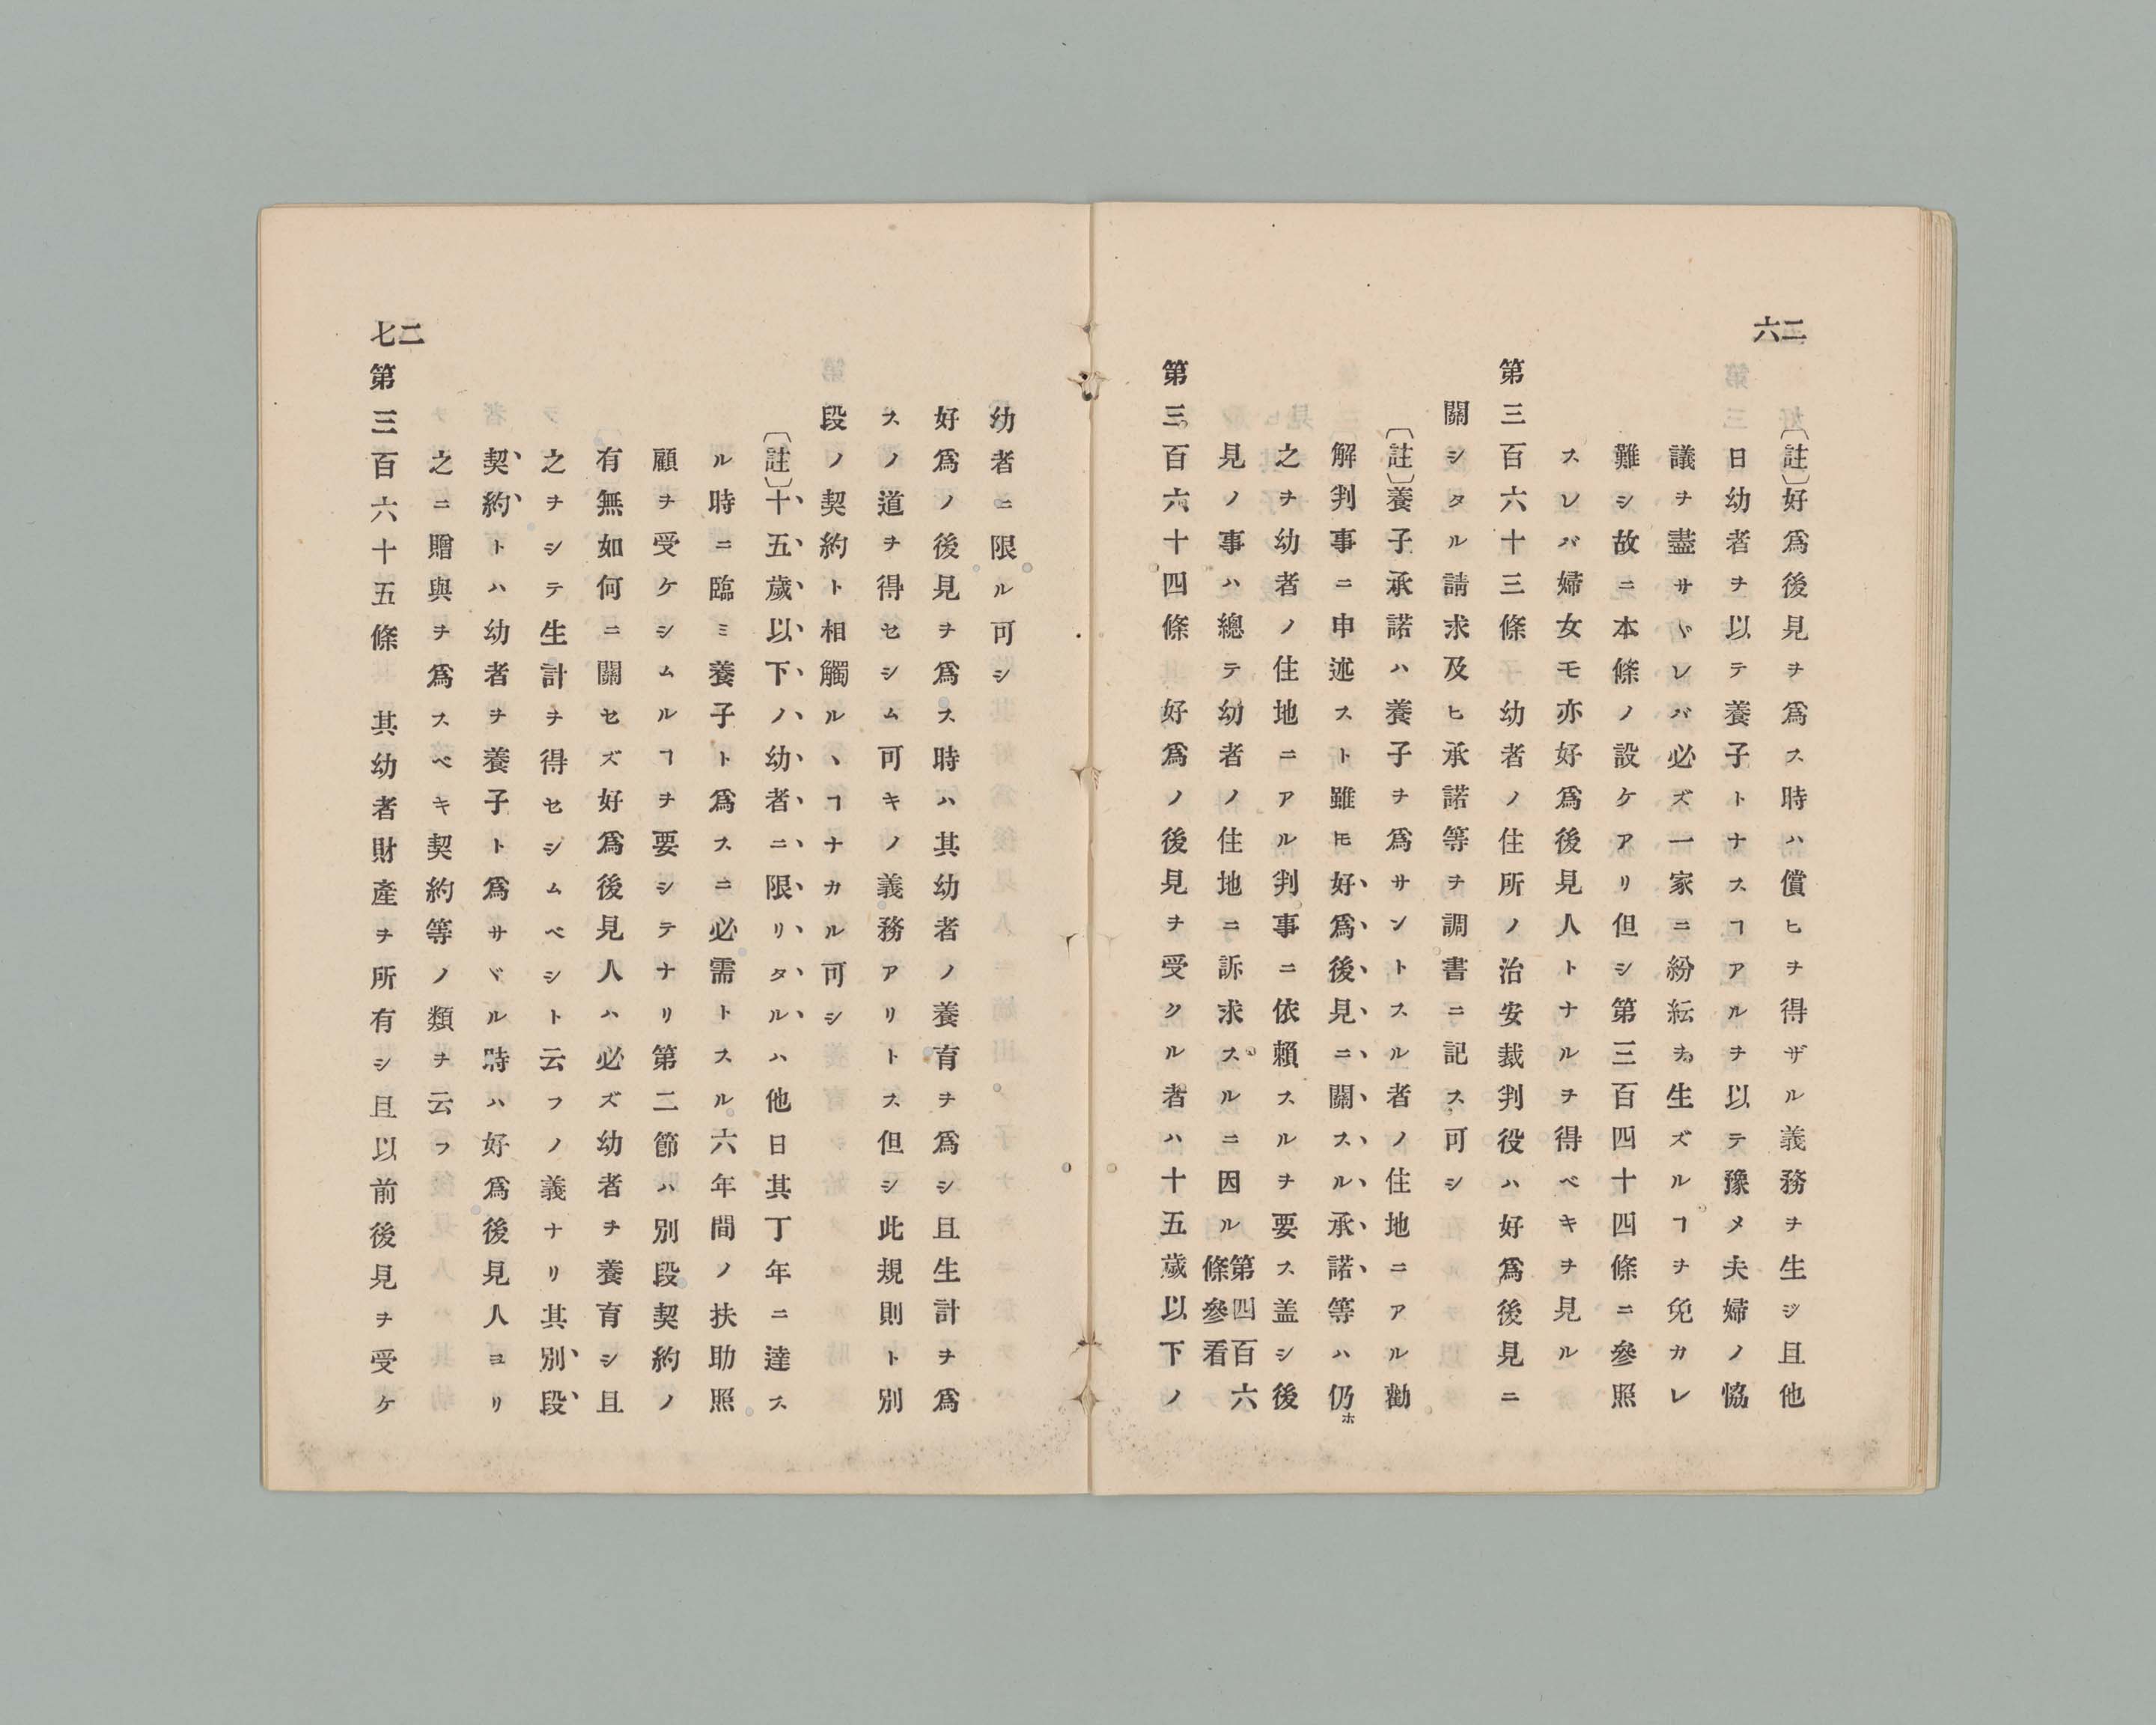 二六
〔註〕好爲後見ヲ爲ス時ハ償ヒヲ得ザル義務ヲ生ジ且他
日幼者ヲ以テ養子トナスヿアルヲ以テ豫メ夫婦ノ恊
議ヲ盡サヾレバ必ズ一家ニ紛紜ヲ生ズルヿヲ免カレ
難シ故ニ本條ノ設ケアリ但シ第三百四十四條ニ參照
スレバ婦女モ亦好爲後見人トナルヲ得ベキヲ見ル
第三百六十三條 幼者ノ住所ノ治安裁判役ハ好爲後見ニ
關シタル請求及ヒ承諾等ヲ調書ニ記ス可シ
〔註〕養子承諾ハ養子ヲ爲サントスル者ノ住地ニアル勸
解判事ニ申述スト雖𪜈好爲後見ニ關スル承諾等ハ仍ホ
之ヲ幼者ノ住地ニアル判事ニ依賴スルヲ要ス盖シ後
見ノ事ハ總テ幼者ノ住地ニ訴求スルニ因ル第四百六條參看
第三百六十四條 好爲ノ後見ヲ受クル者ハ十五歲以下ノ
幼者ニ限ル可シ
好爲ノ後見ヲ爲ス時ハ其幼者ノ養育ヲ爲シ且生計ヲ爲
スノ道ヲ得セシム可キノ義務アリトス但シ此規則ト別
段ノ契約ト相觸ルヽヿナカル可シ
〔註〕十五歲以下ノ幼者ニ限リタルハ他日其丁年ニ達ス
ル時ニ臨ミ養子ト爲スニ必需トスル六年間ノ扶助照
顧ヲ受ケシムルヿヲ要シテナリ第二節ハ別段契約ノ
有無如何ニ關セズ好爲後見人ハ必ズ幼者ヲ養育シ且
之ヲシテ生計ヲ得セシムベシト云フノ義ナリ其別段
契約トハ幼者ヲ養子ト爲サヾル時ハ好爲後見人ヨリ
之ニ贈與ヲ爲スベキ契約等ノ類ヲ云フ
第三百六十五條 其幼者財產ヲ所有シ且以前後見ヲ受ケ
二七